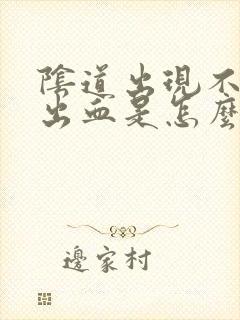 陰道出現不
出血是怎麼
邊家村